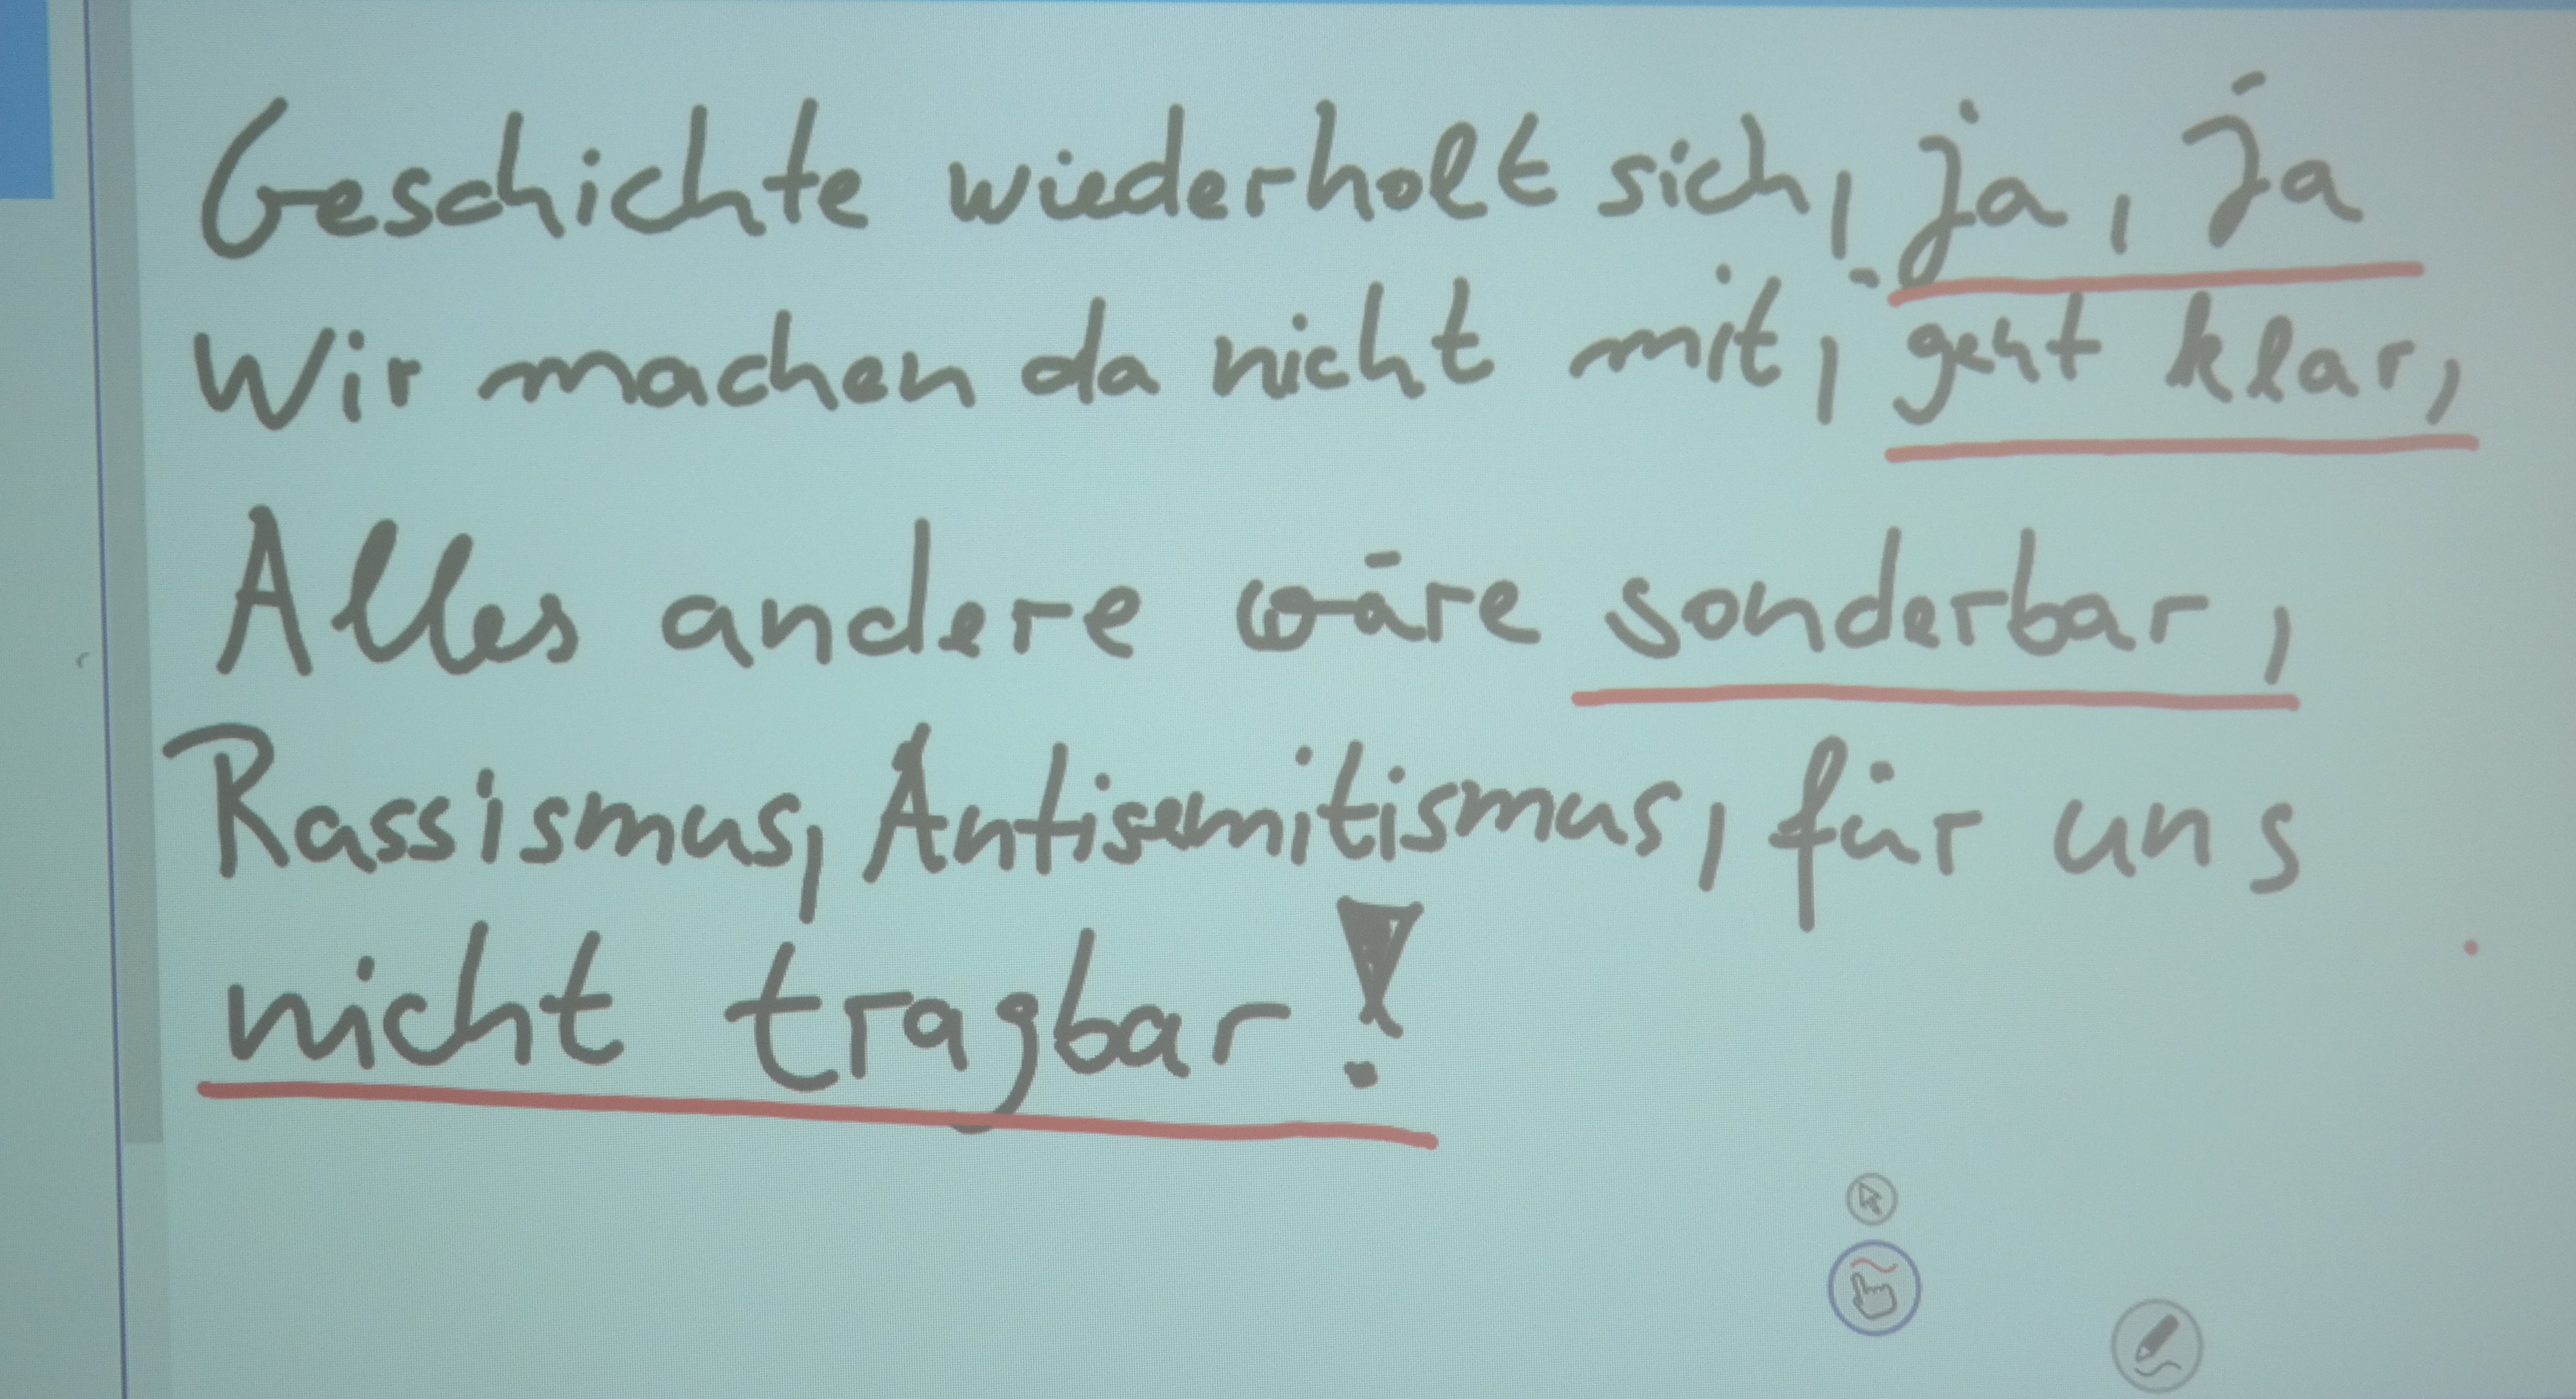 Geschichte wiederholt sich, ja, ja
Wir machen da nicht mit, geht klar,
Alles andere wäre sonderbar,
Rassismus, Antisemitismus, für uns
nicht tragbar!